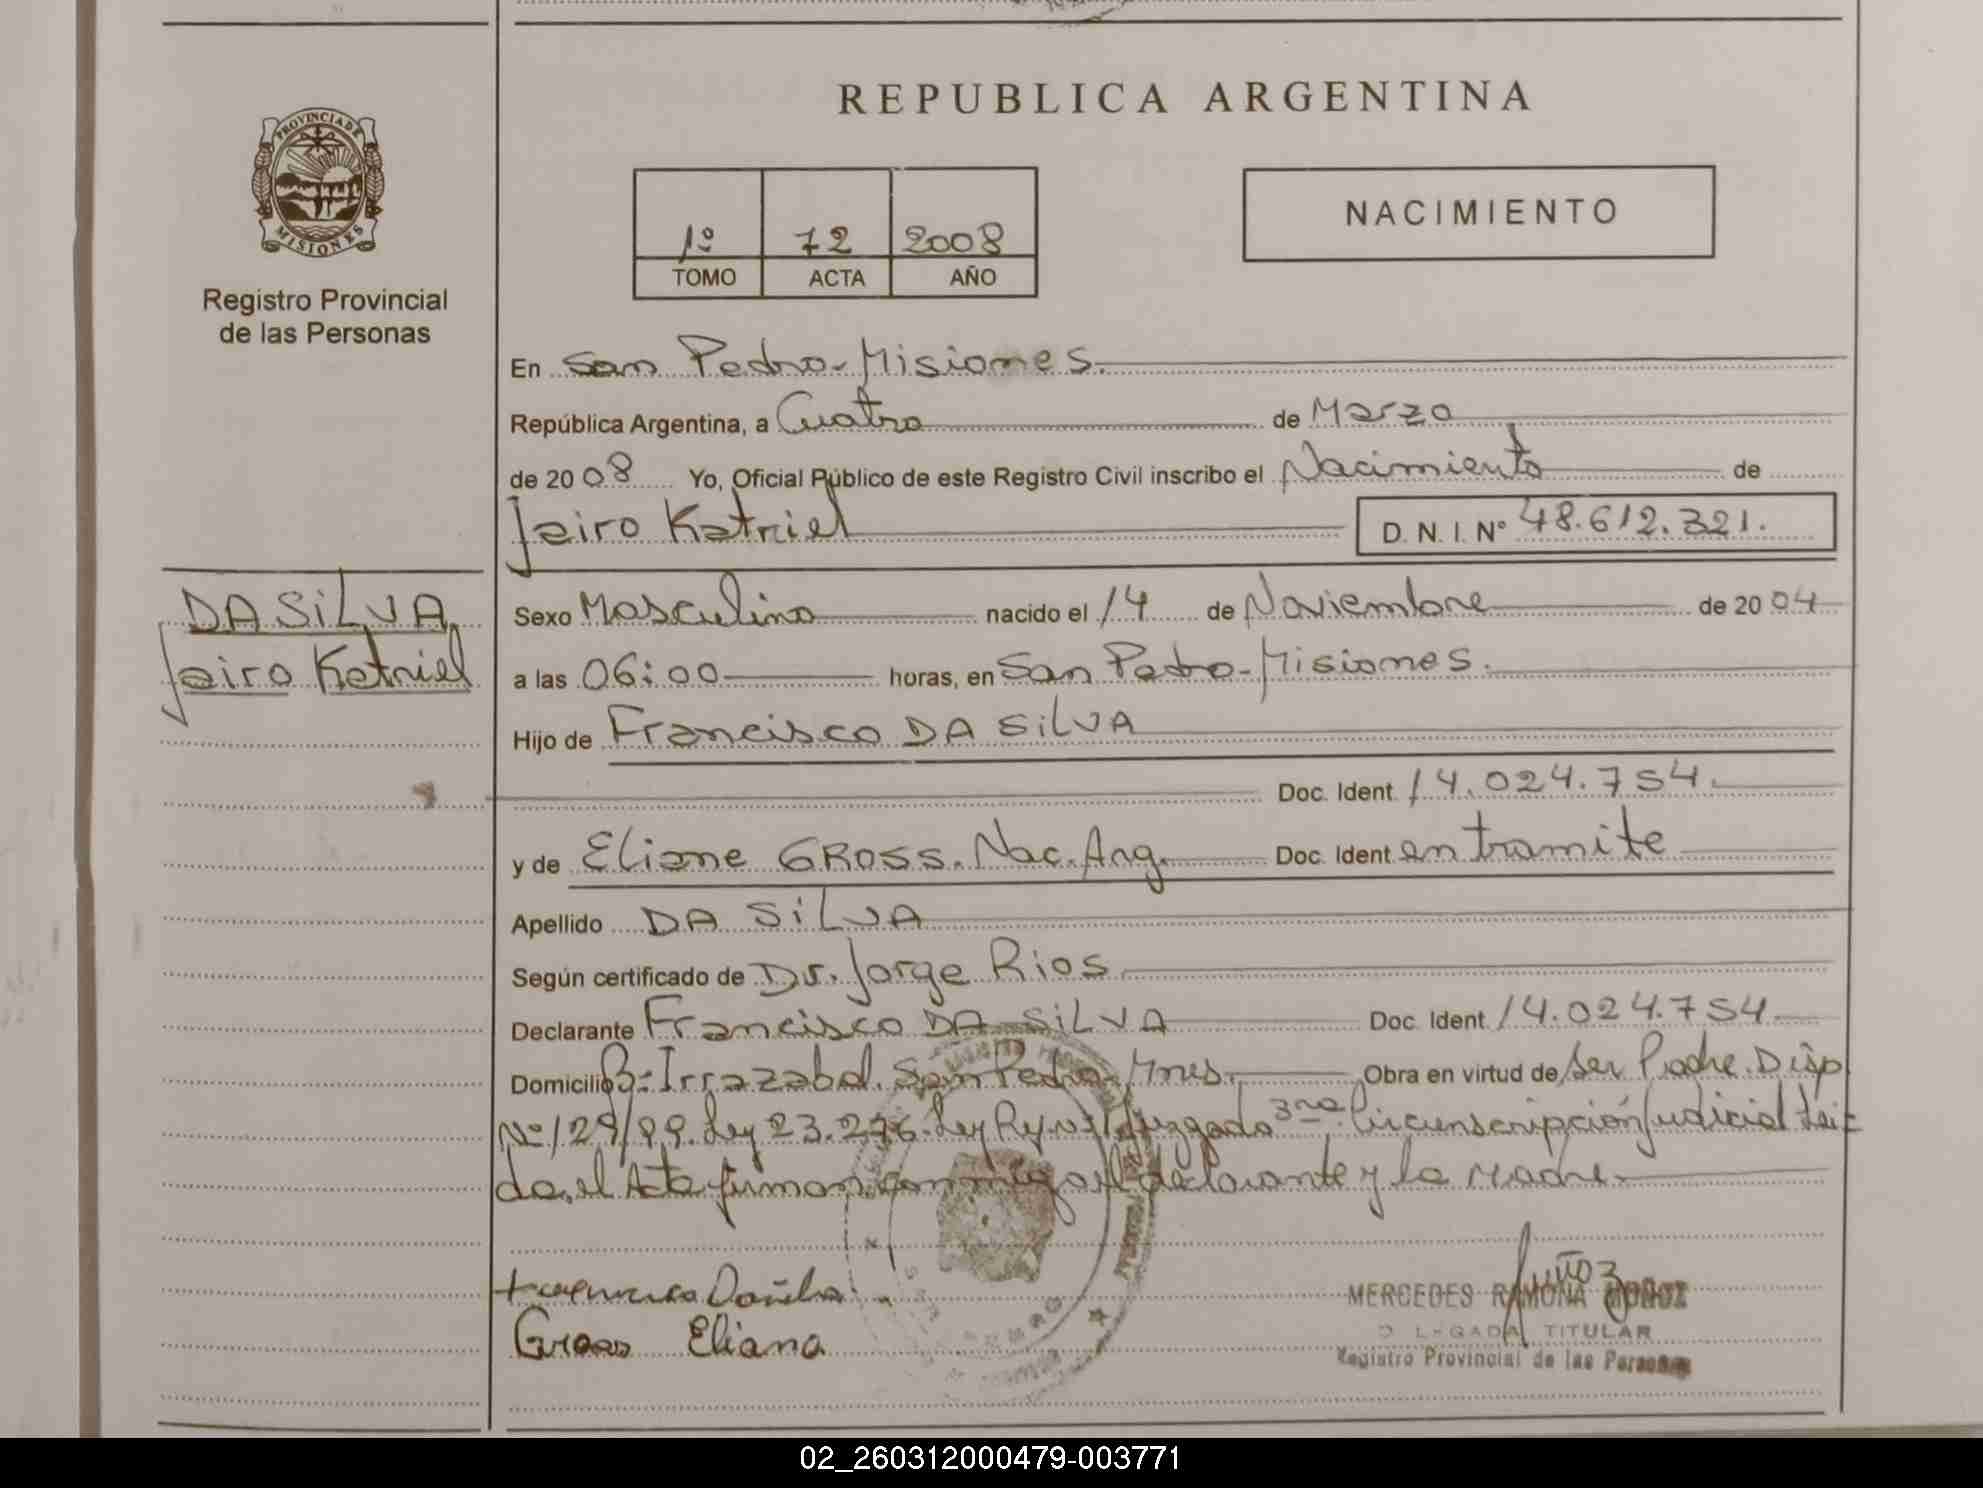 REPUBLICA ARGENTINA
PROVINCIA DE
MISIONES
Registro Provincial
de las Personas
NACIMIENTO
1º 72 2008
TOMO ACTA AÑO
En San Pedro-Misiones.
República Argentina, a Cuatro de Marzo
de 2008 Yo, Oficial Público de este Registro Civil inscribo el Nacimiento de
Jairo Katriel D. N. I. Nº 48.612.321.
DA SiLVA
Jairo Katriel
Sexo Masculino nacido el 14 de Noviembre de 2004
a las 06:00 horas, en San Pedro-Misiones.
Hijo de Francisco DA SiLVA
Doc. Ident. 14.024.754.
y de Eliane GROSS. Nac. Arg. Doc. Ident. en tramite
Apellido DA SiLVA
Según certificado de Dr. Jorge Rios
Declarante Francisco DA SiLVA Doc. Ident. 14.024.754.
Domicilio B: Irrazabal. San Pedro- Mnes. Obra en virtud de ser Padre. Disp
Nº 129/99. Ley 23.276. Ley Juzgado 3ra. Circunscripción Judicial Lei-
da, el Acta firman conmigo el declarante y la Madre.
Gross Eliana
Muñoz
MERCEDES RAMONA MUÑOZ
TITULAR
Registro Provincial de las Personas
02_260312000479-003771